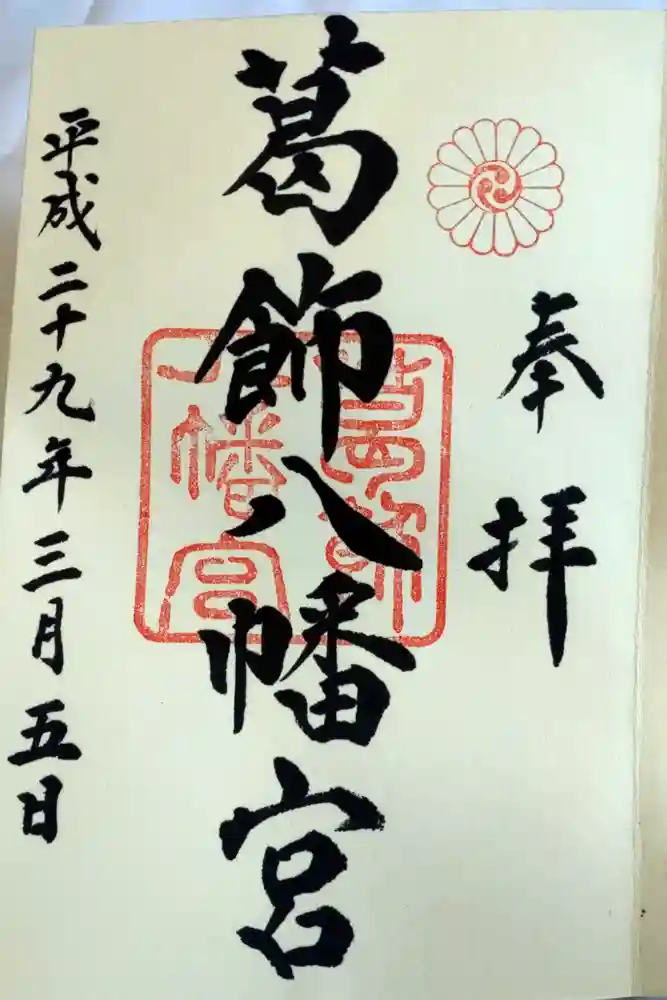 奉拝
葛飾八幡宮
葛飾
八幡宮
平成二十九年三月五日